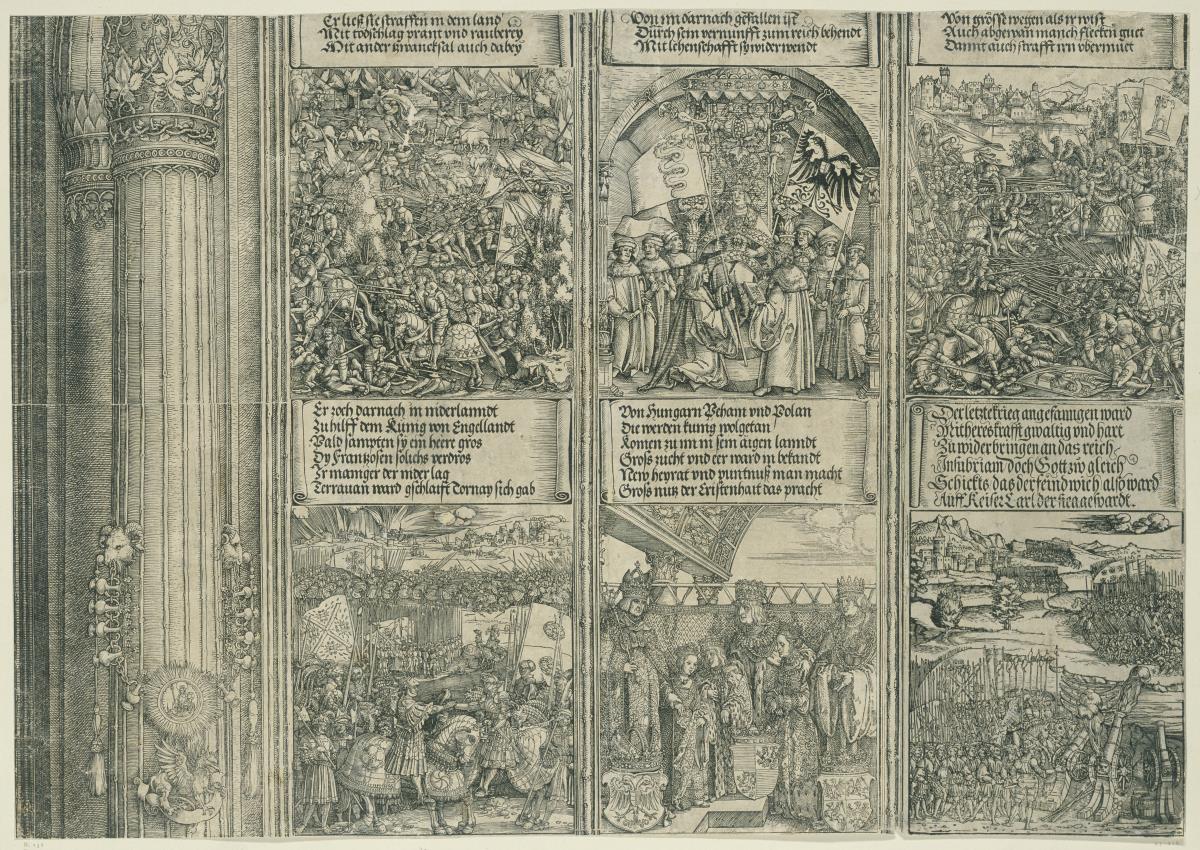 Er ließ sie straffen in dem land
Mit todschlag prant vnd rauberey
Mit ander zwancksal auch dabey
Von im darnach gefallen ist
Durch sein vernunfft zum reich behendt
Mit lehenschafft sy wider wendt
Von grösse wegen als ir wist
Auch abgewan manch flecken guet
Damit auch strafft irn vbermuet
Er zoch darnach in niderlanndt
Zu hilff dem Kunig von Engellandt
Pald sampten sy ein heere gros
Dy Frantzosen solichs verdros
Ir mainger der nider lag
Terrauan ward gschlaifft Tornay sich gab
Von Hungarn Peham vnd Polan
Die werden kunig wolgetan
Komen zu im in sein aigen lanndt
Groß zucht vnd eer ward in bekandt
New heyrat vnd puntnuß man macht
Groß nutz der Cristenhait das pracht
Der letzte krieg angefanngen ward
Mit hereskrafft gwaltig vnd hart
Zu widerbringen an das reich
Insubriam doch Gott zw gleich
Schickts das der feind wich alsbward
Auff Keiser Carl der sieg gespardt.